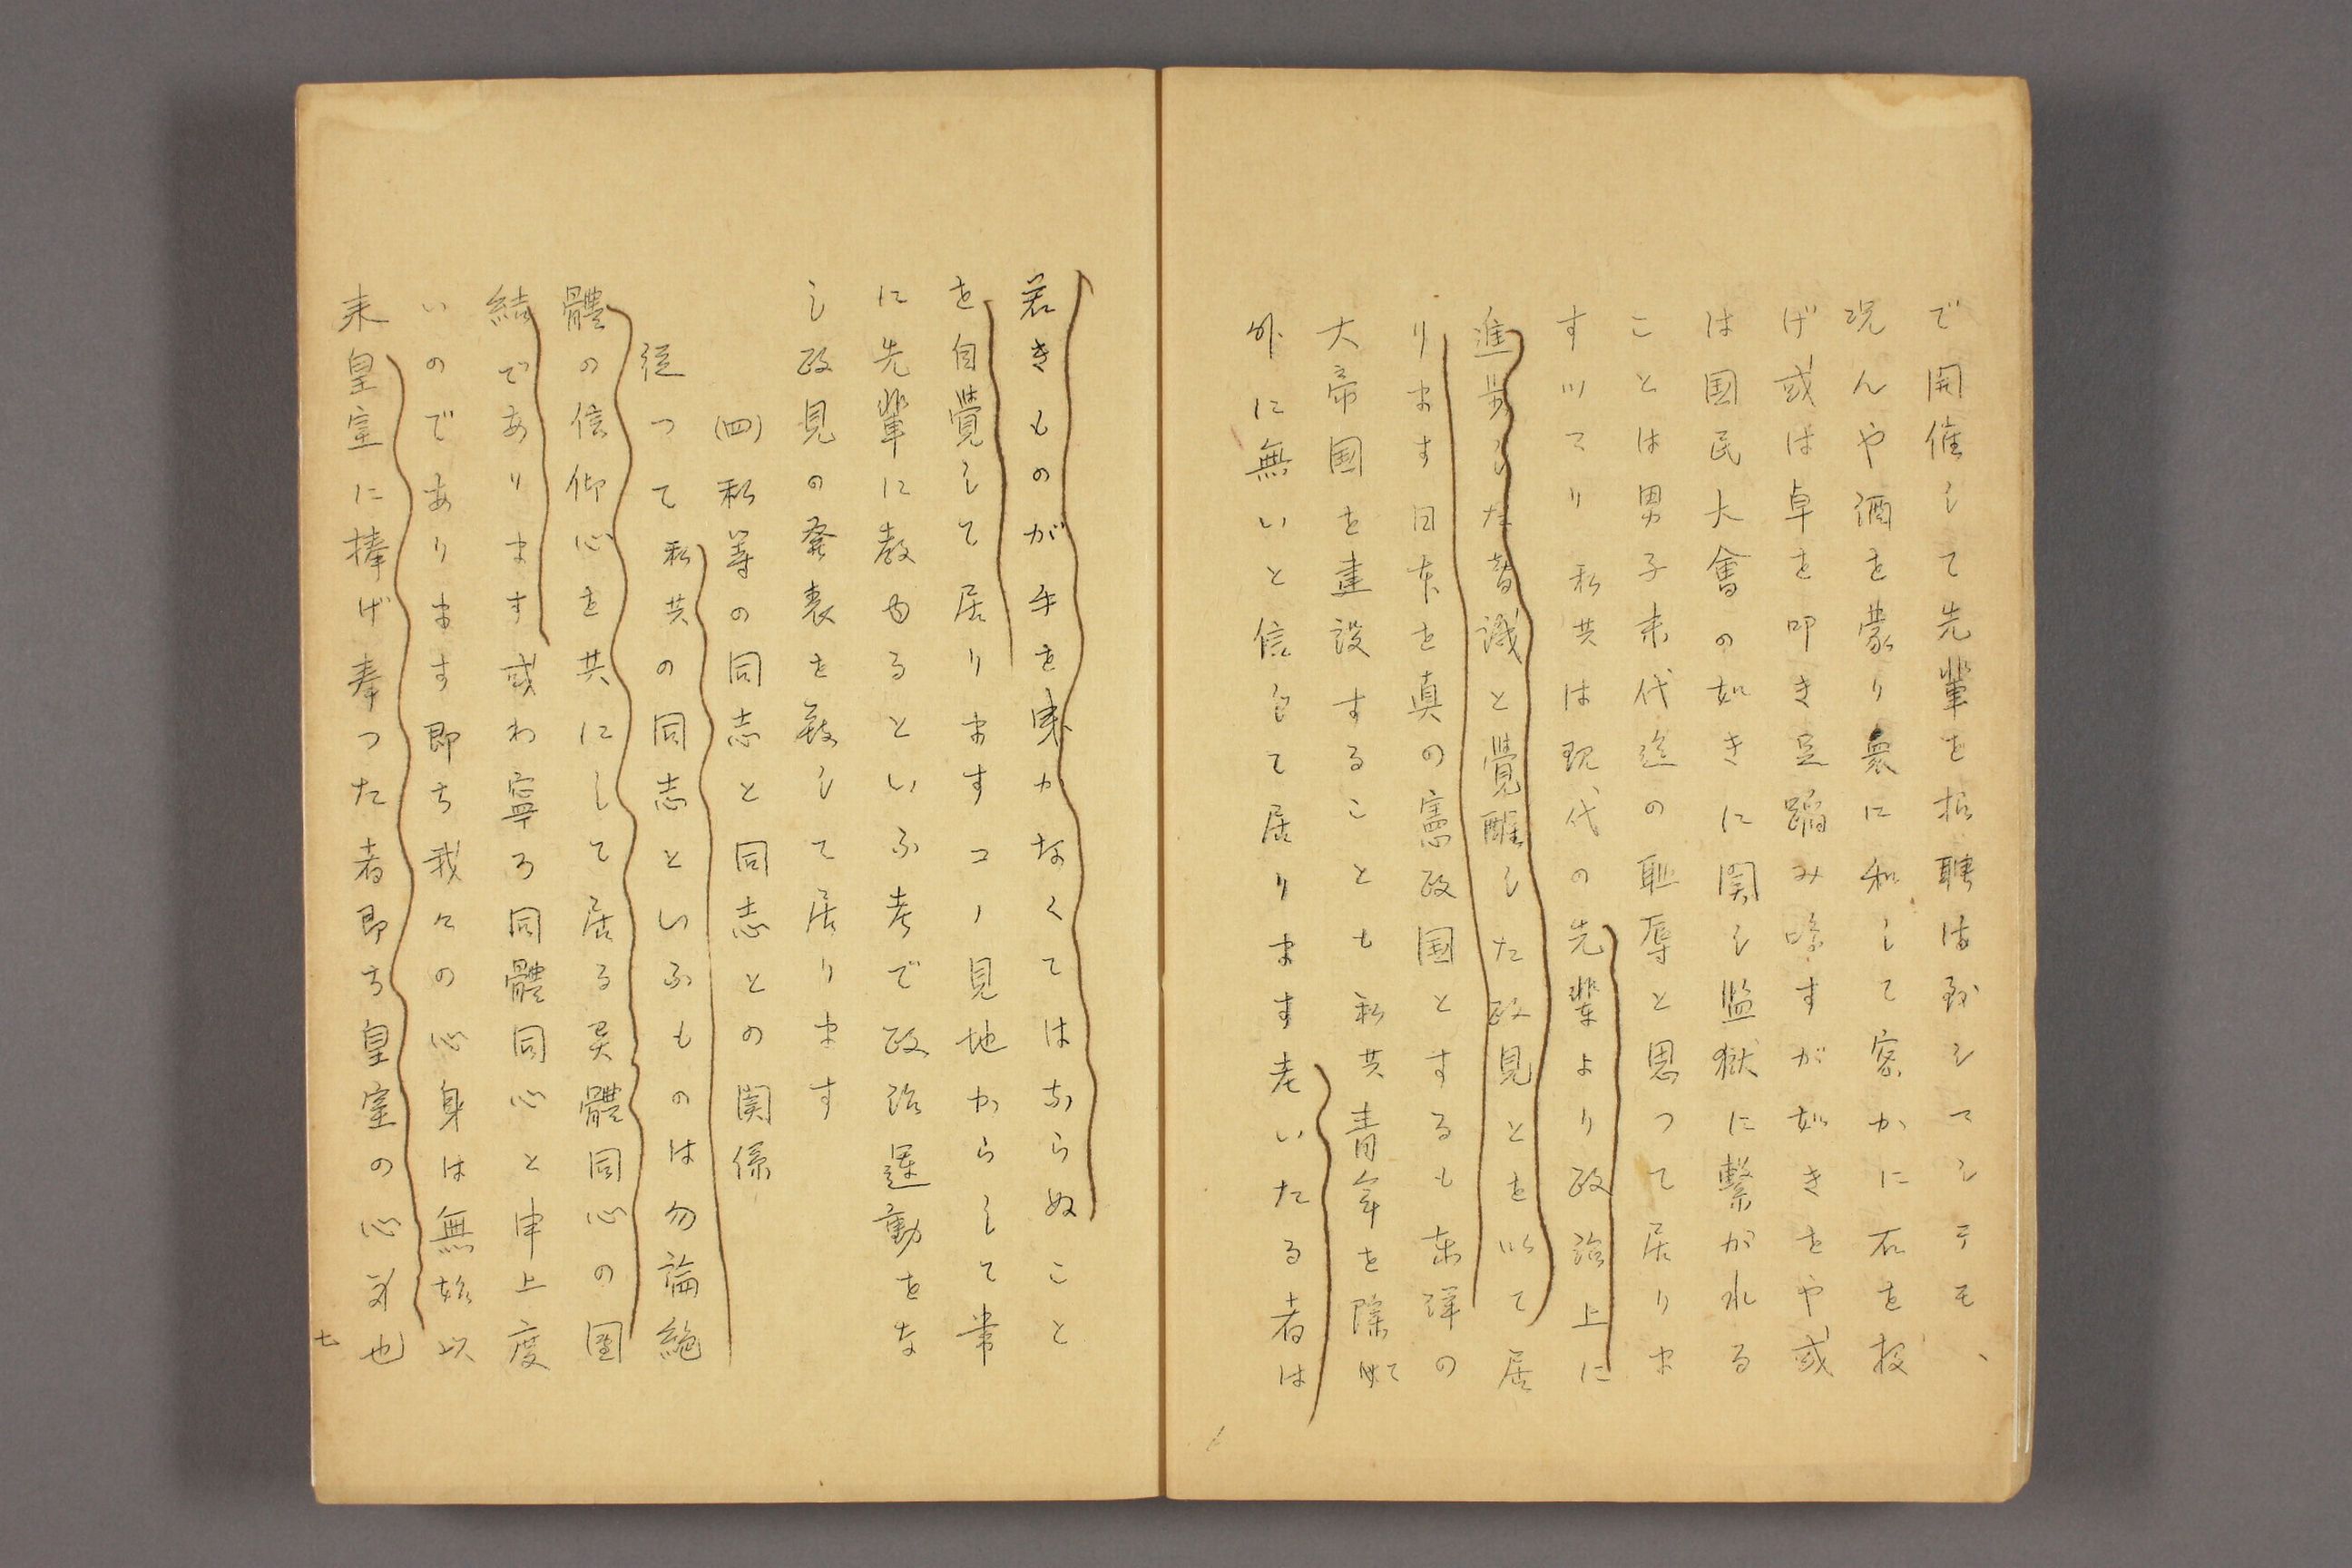 で開催して先輩を招聘は致シマシテモ、
況んや酒を蒙り衆に和して密かに石を投
げ或は卓を叩き足蹈み啼すが如きをや或
は国民大會の如きに関し監獄に繋がれる
ことは男子末代迄の耻辱と思つて居りま
すツマリ私共は現代の先輩より政治上に
進歩した智識と覺醒した政見とを以て居
ります日本を真の憲政国とするも東洋の
大帝国を建設することも私共青年を除めて
外に無いと信じて居ります老いたる者は
若きものが手を束かなくてはならぬこと
を自覺して居りますコノ見地からして常
に先輩に教ゆるといふ考で政治運動をな
し政見の發表を致して居ります
(四)私等の同志と同志との関係
従つて私共の同志といふものは勿論絶
體の信仰心を共にして居る異體同心の団
結であります或わ寧ろ同體同心と申上度
いのであります即ち我々の心身は無始以
来皇室に捧げ奉つた者即ち皇室の心身也
七